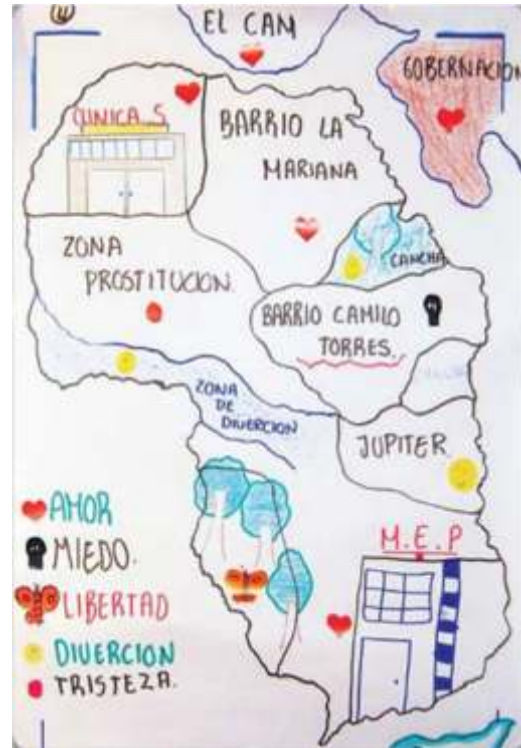 EL CAM
GOBERNACION
CLINICA S
BARRIO LA
MARIANA
CANCHA
ZONA
PROSTITUCION.
BARRIO CAMILO
TORRES.
ZONA
DE
DIVERCION
JUPITER
M.E.P
AMOR
MIEDO.
LIBERTAD
DIVERCION
TRISTEZA.